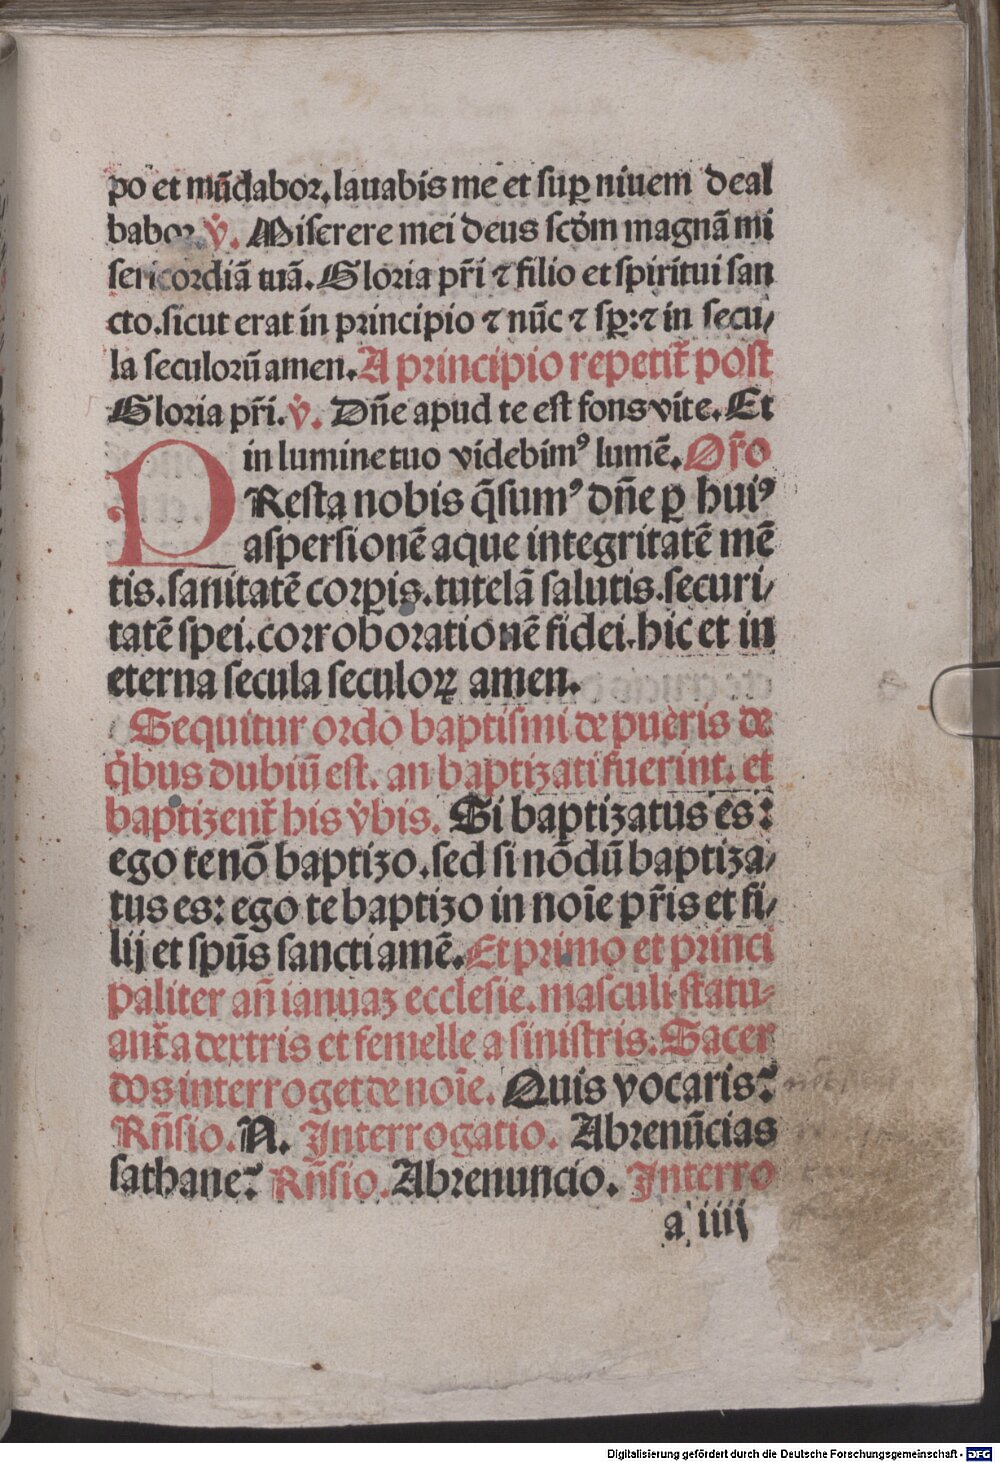 po et mūdabor.lauabis me et suꝑ niuem deal
babor. v̉. Miserere mei deus scd̓m magnā mi
sericordiā tuā. Gloria pr̄i ⁊ filio et spiritui san
cto.sicut erat in principio ⁊ nūc ⁊ sꝑ:⁊ in secu/
la seculorū amen. A principio repetit᷑ post
Gloria pr̄i. v̉. Dn̄e apud te est fons vite. Et
in lumine tuo videbimꝰ lumē. Or̄o
PResta nobis q̄sumꝰ dn̄e ꝑ huiꝰ
aspersionē aque integritatē mē
tis.sanitatē corꝑis.tutelā salutis.securi/
tatē spei.corroborationē fidei.hic et in
eterna secula seculoꝝ amen.
Sequitur ordo baptismi de pueris de
q̉bus dubiū est. an baptizati fuerint. et
baptizent᷑ his v̉bis. Si baptizatus es:
ego te nō baptizo.sed si nōdū baptiza/
tus es: ego te baptizo in noīe pr̄is et fi/
lij et spūs sancti amē. Et primo et princi
paliter an̄ ianuaꝫ ecclesie.masculi statu/
ant᷑ a dextris et femelle a sinistris. Sacer
dos interroget de noīe. Quis vocaris?
Rn̄sio. N. Interrogatio. Abrenūcias
sathane? Rn̄sio. Abrenuncio. Interro
a iiij
Digitalisierung gefördert durch die Deutsche Forschungsgemeinschaft - DFG